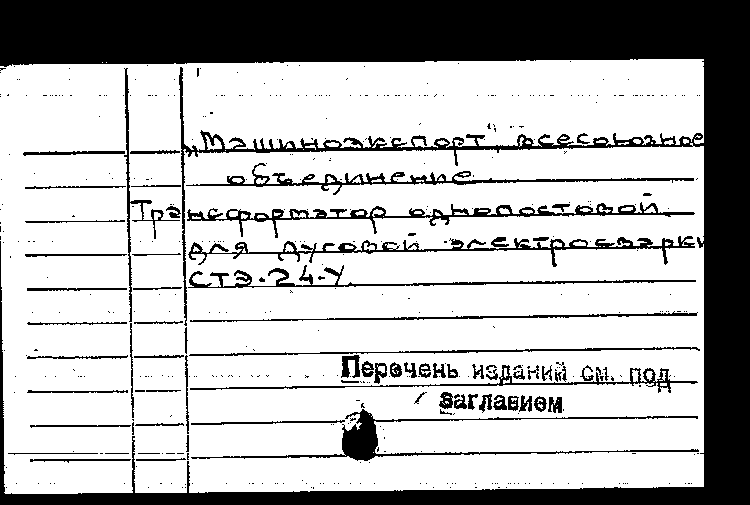 „Машиноэкспорт", всесоюзное
объединение.
Трансформатор однопостовой
для дуговой электросварки
СТЭ-24-У.
Перечень изданий см. под
заглавием